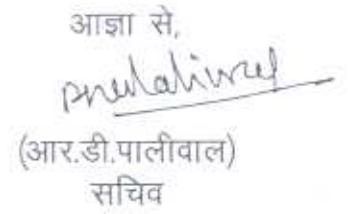 आज्ञा से,
(आर.डी.पालीवाल)
सचिव